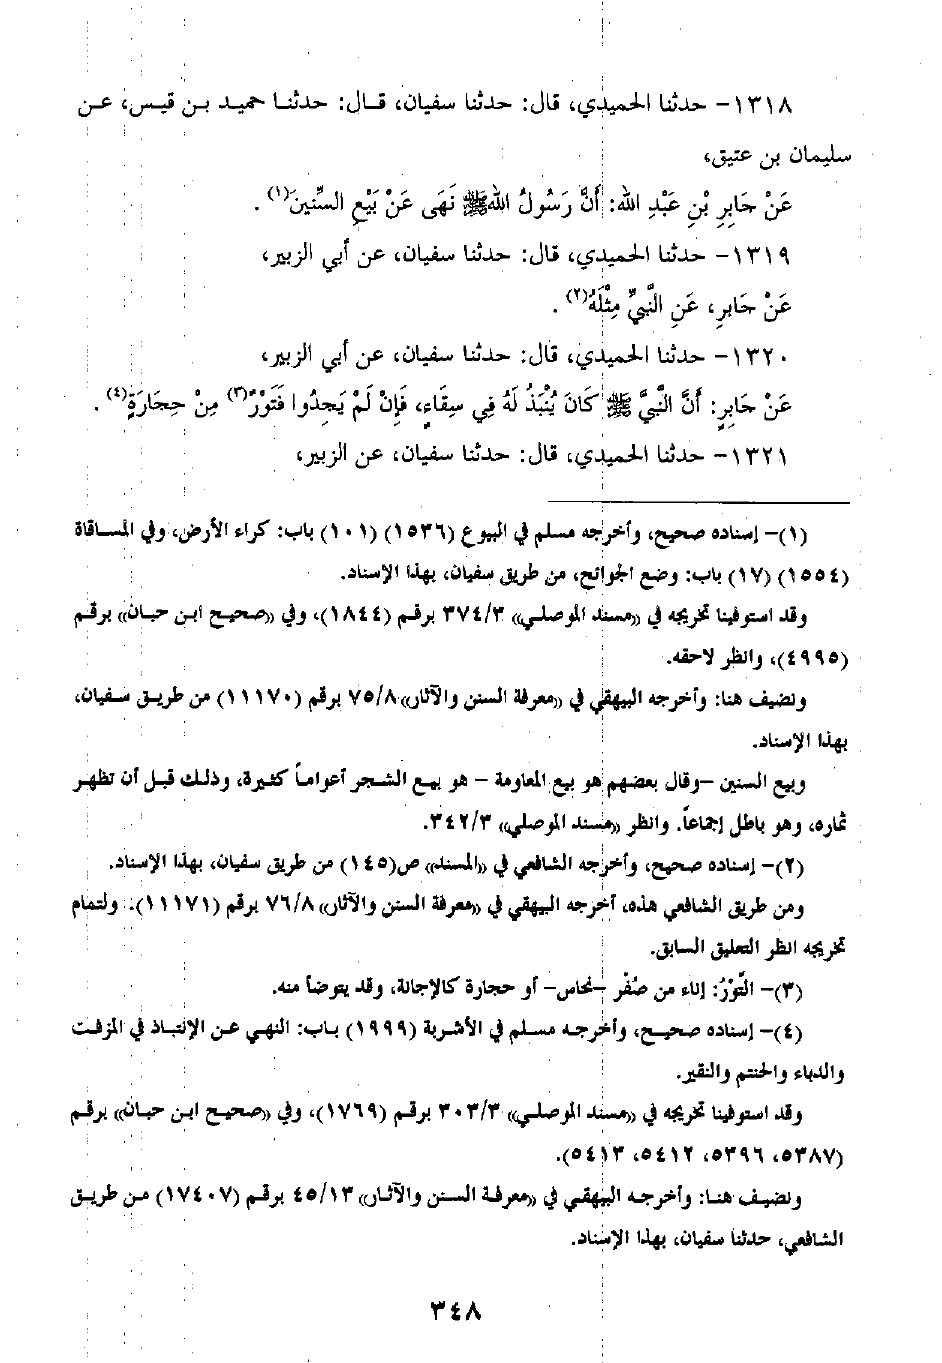 ١٣١٨- حدثنا الحميدي، قال: حدثنا سفيان، قال: حدثنا حميد بن قيس، عن
سليمان بن عتيق،
عَنْ جَابِرِ بْنِ عَبْدِ اللهِ: أَنَّ رَسُولُ اللهِ ﷺ نَهَى عَنْ بَيْعِ السِّنِينَ(١).
١٣١٩- حدثنا الحميدي، قال: حدثنا سفيان، عن أبي الزبير،
عَنْ جَابِرٍ، عَنِ النَّبِيِّ مِثْلَهُ(٢).
١٣٢٠- حدثنا الحميدي، قال: حدثنا سفيان، عن أبي الزبير،
عَنْ جَابِرٍ: أَنَّ النَّبِيَّ ﷺ كَانَ يُنْبَذُ لَهُ فِي سِقَاءٍ، فَإِنْ لَمْ يَجِدُوا فَتَوْرٌ(٣) مِنْ حِجَارَةٍ(٤).
١٣٢١- حدثنا الحميدي، قال: حدثنا سفيان، عن الزبير،
(١)- إسناده صحيح، وأخرجه مسلم في البيوع (١٥٣٦) (١٠١) باب: كراء الأرض، وفي المساقاة
(١٥٥٤) (١٧) باب: وضع الجوائح، من طريق سفيان، بهذا الإسناد.
وقد استوفينا تخريجه في «مسند الموصلي» ٣٧٤/٣ برقم (١٨٤٤)، وفي «صحيح ابن حبان» برقم
(٤٩٩٥)، وانظر لاحقه.
ونضيف هنا: وأخرجه البيهقي في «معرفة السنن والآثار» ٧٥/٨ برقم (١١١٧٠) من طريق سفيان،
بهذا الإسناد.
وبيع السنين -وقال بعضهم هو بيع المعاومة - هو بيع الشجر أعواماً كثيرة، وذلك قبل أن تظهر
ثماره، وهو باطل إجماعاً. وانظر «مسند الموصلي» ٣٤٢/٣.
(٢)- إسناده صحيح، وأخرجه الشافعي في «المسند» ص(١٤٥) من طريق سفيان، بهذا الإسناد.
ومن طريق الشافعي هذه، أخرجه البيهقي في «معرفة السنن والآثار» ٧٦/٨ برقم (١١١٧١). ولتمام
تخريجه انظر التعليق السابق.
(٣)- التَّوْرُ: إناء من صُفْر -نحاس- أو حجارة كالإجانة، وقد يتوضأ منه.
(٤)- إسناده صحيح، وأخرجه مسلم في الأشربة (١٩٩٩) باب: النهي عن الإنتباذ في المزفت
والدباء والحنتم والنقير.
وقد استوفينا تخريجه في «مسند الموصلي» ٣٠٣/٣ برقم (١٧٦٩)، وفي «صحيح ابن حبان» برقم
(٥٣٨٧، ٥٣٩٦، ٥٤١٢، ٥٤١٣).
ونضيف هنا: وأخرجه البيهقي في «معرفة السنن والآثار» ٤٥/١٣ برقم (١٧٤٠٧) من طريق
الشافعي، حدثنا سفيان، بهذا الإسناد.
٣٤٨